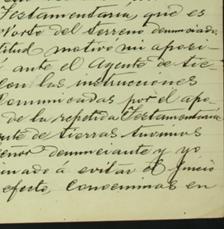 Testamentaria, que es
Norte del terreno denunciado,
titud motivo mi oposi-
á ante el Agente de tie-
con las instrucciones
comunicadas por el apo-
de la repetida Testamentaria
nte de tierras tuvimos
eñor denunciante y yo
inado á evitar el juicio
efecto, convenimos en